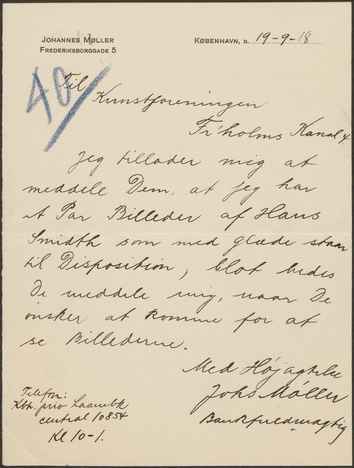 JOHANNES MØLLER
FREDERIKSBORGGADE 5
KØBENHAVN, D. 19-9-18
40
Til
Kunstforeningen
Fr.holms Kanal 4
Jeg tillader mig at
meddele Dem, at jeg har
et Par Billeder af Hans
Smidth som med glæde staar
til Disposition, blot bedes
De meddele mig, naar De
ønsker at komme for at
se Billederne.
Med Højagtelse
Johs Møller
Bankfuldmægtig
Telefon:
Kbh. priv Laanebk
central 10854
Kl 10-1.